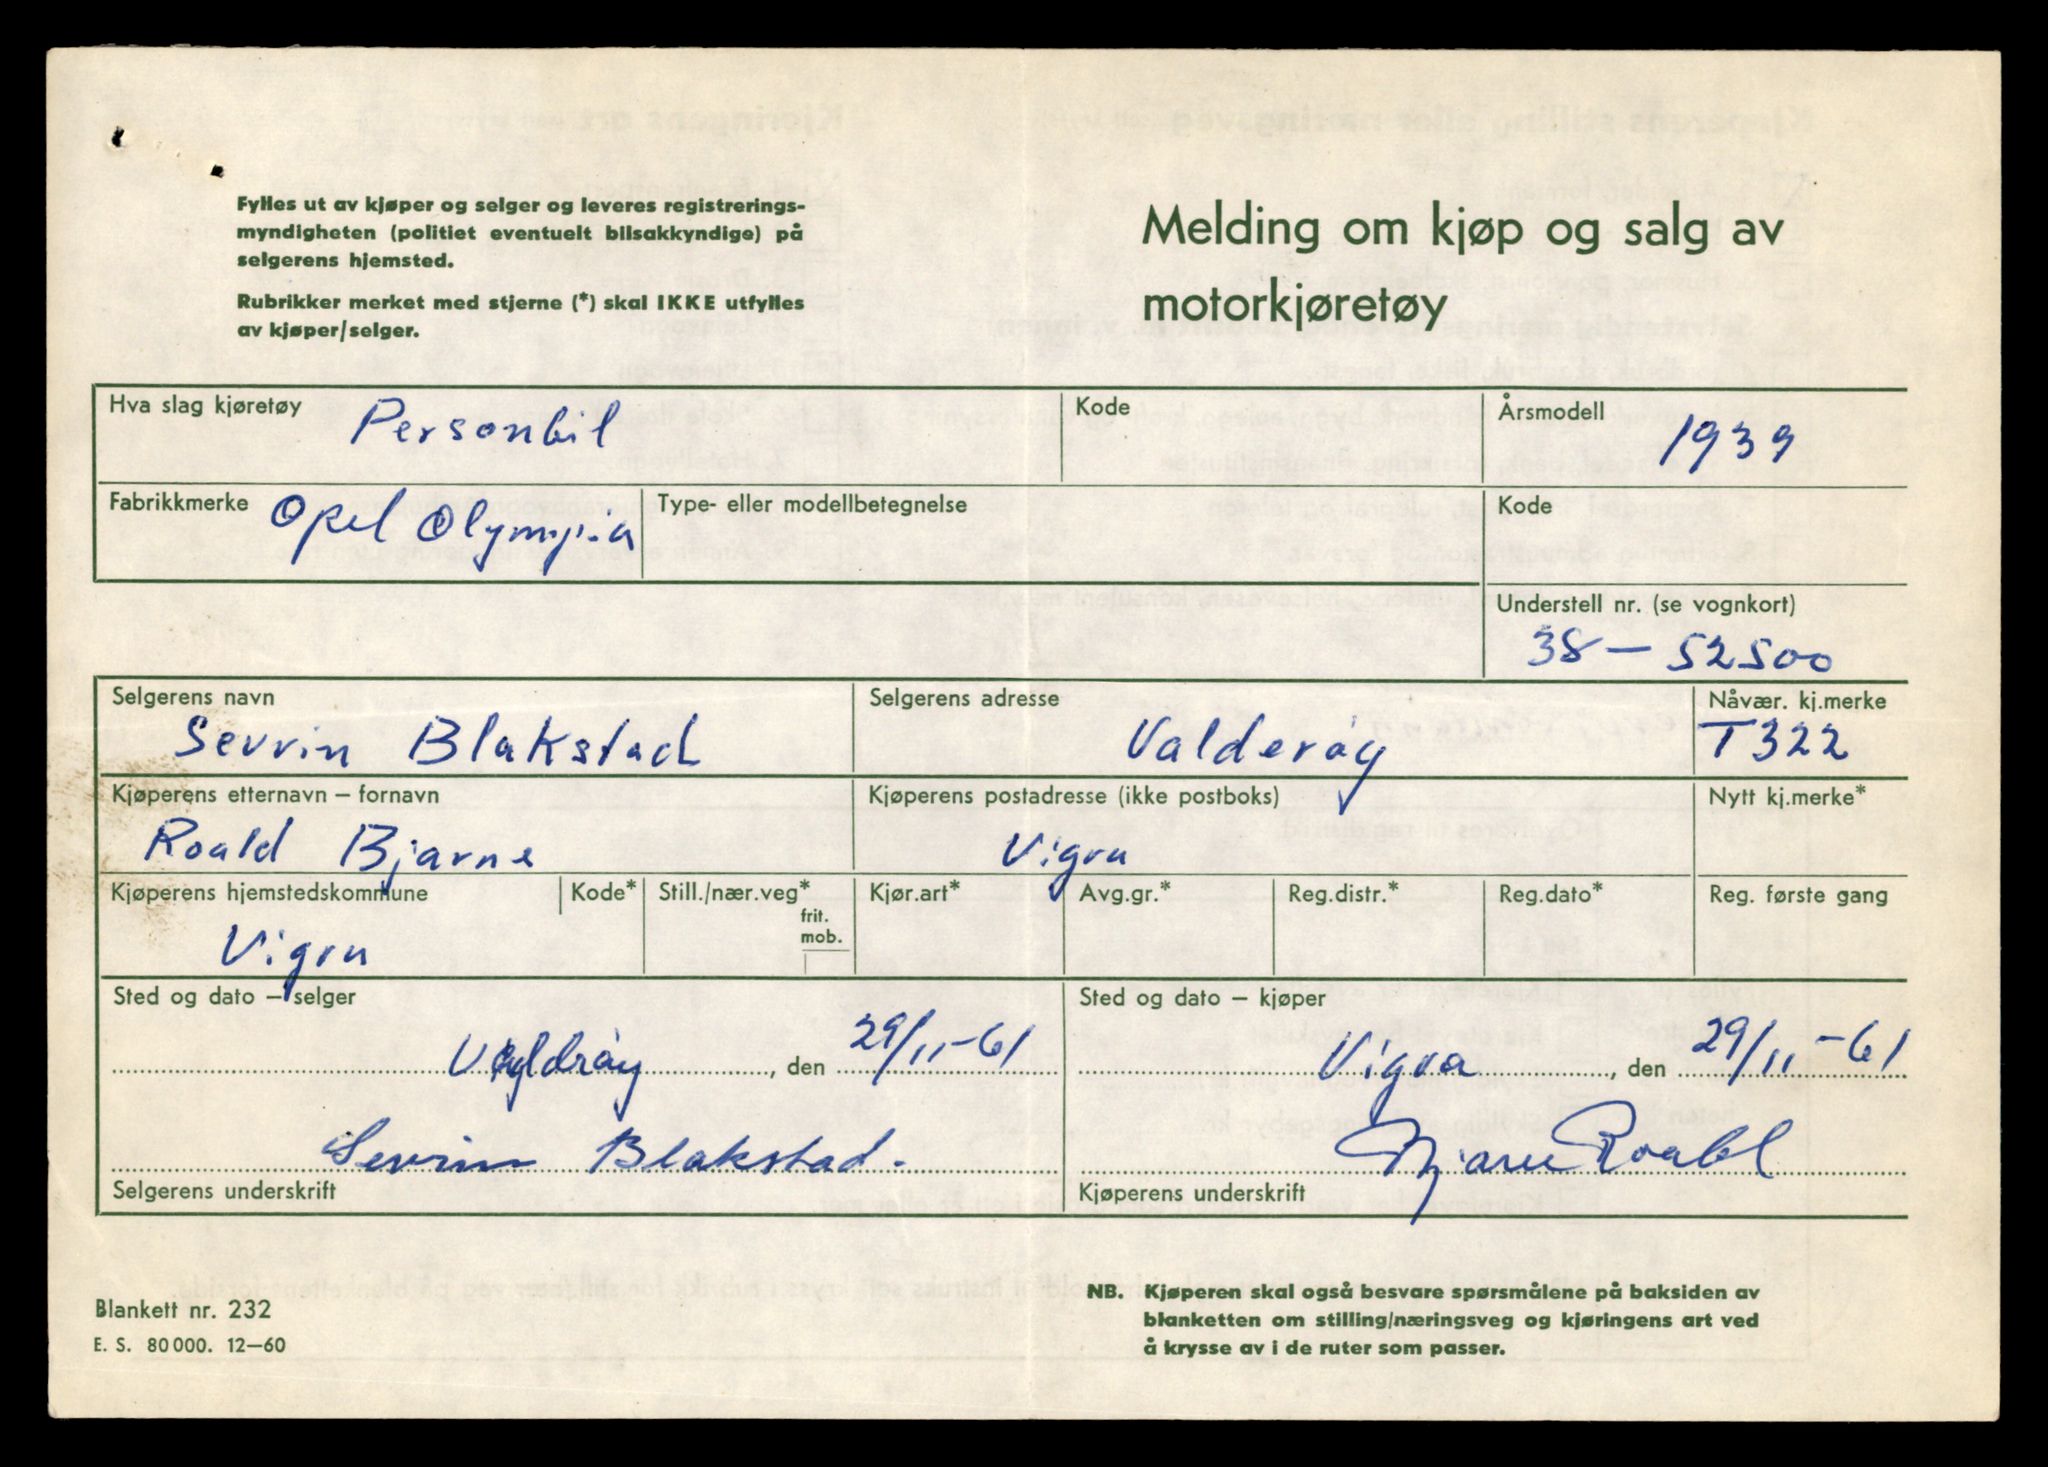 Fylles ut av kjøper og selger og leveres registrerings-
myndigheten (politiet eventuelt bilsakkyndige) på
selgerens hjemsted.
Rubrikker merket med stjerne (*) skal IKKE utfylles
av kjøper/selger.
Melding om kjøp og salg av
motorkjøretøy
Hva slag kjøretøy Personbil
Kode
Årsmodell 1939
Fabrikkmerke Opel Olympia
Type- eller modellbetegnelse
Kode
Understell nr. (se vognkort)
38 – 52500
Selgerens navn
Sevrin Blakstad
Selgerens adresse
Valderøy
Nåvær. kj.merke
T322
Kjøperens etternavn – fornavn
Roald Bjarne
Kjøperens postadresse (ikke postboks)
Vigra
Nytt kj.merke*
Kjøperens hjemstedskommune
Vigra
Kode*
Still./nær.veg*
frit.
mob.
Kjør.art*
Avg.gr.*
Reg.distr.*
Reg.dato*
Reg. første gang
Sted og dato – selger
Valdrøy, den 29/11-61
Sevrin Blakstad.
Selgerens underskrift
Sted og dato – kjøper
Vigra, den 29/11-61
Bjarne Roald
Kjøperens underskrift
Blankett nr. 232
E. S. 80 000. 12–60
NB. Kjøperen skal også besvare spørsmålene på baksiden av
blanketten om stilling/næringsveg og kjøringens art ved
å krysse av i de ruter som passer.